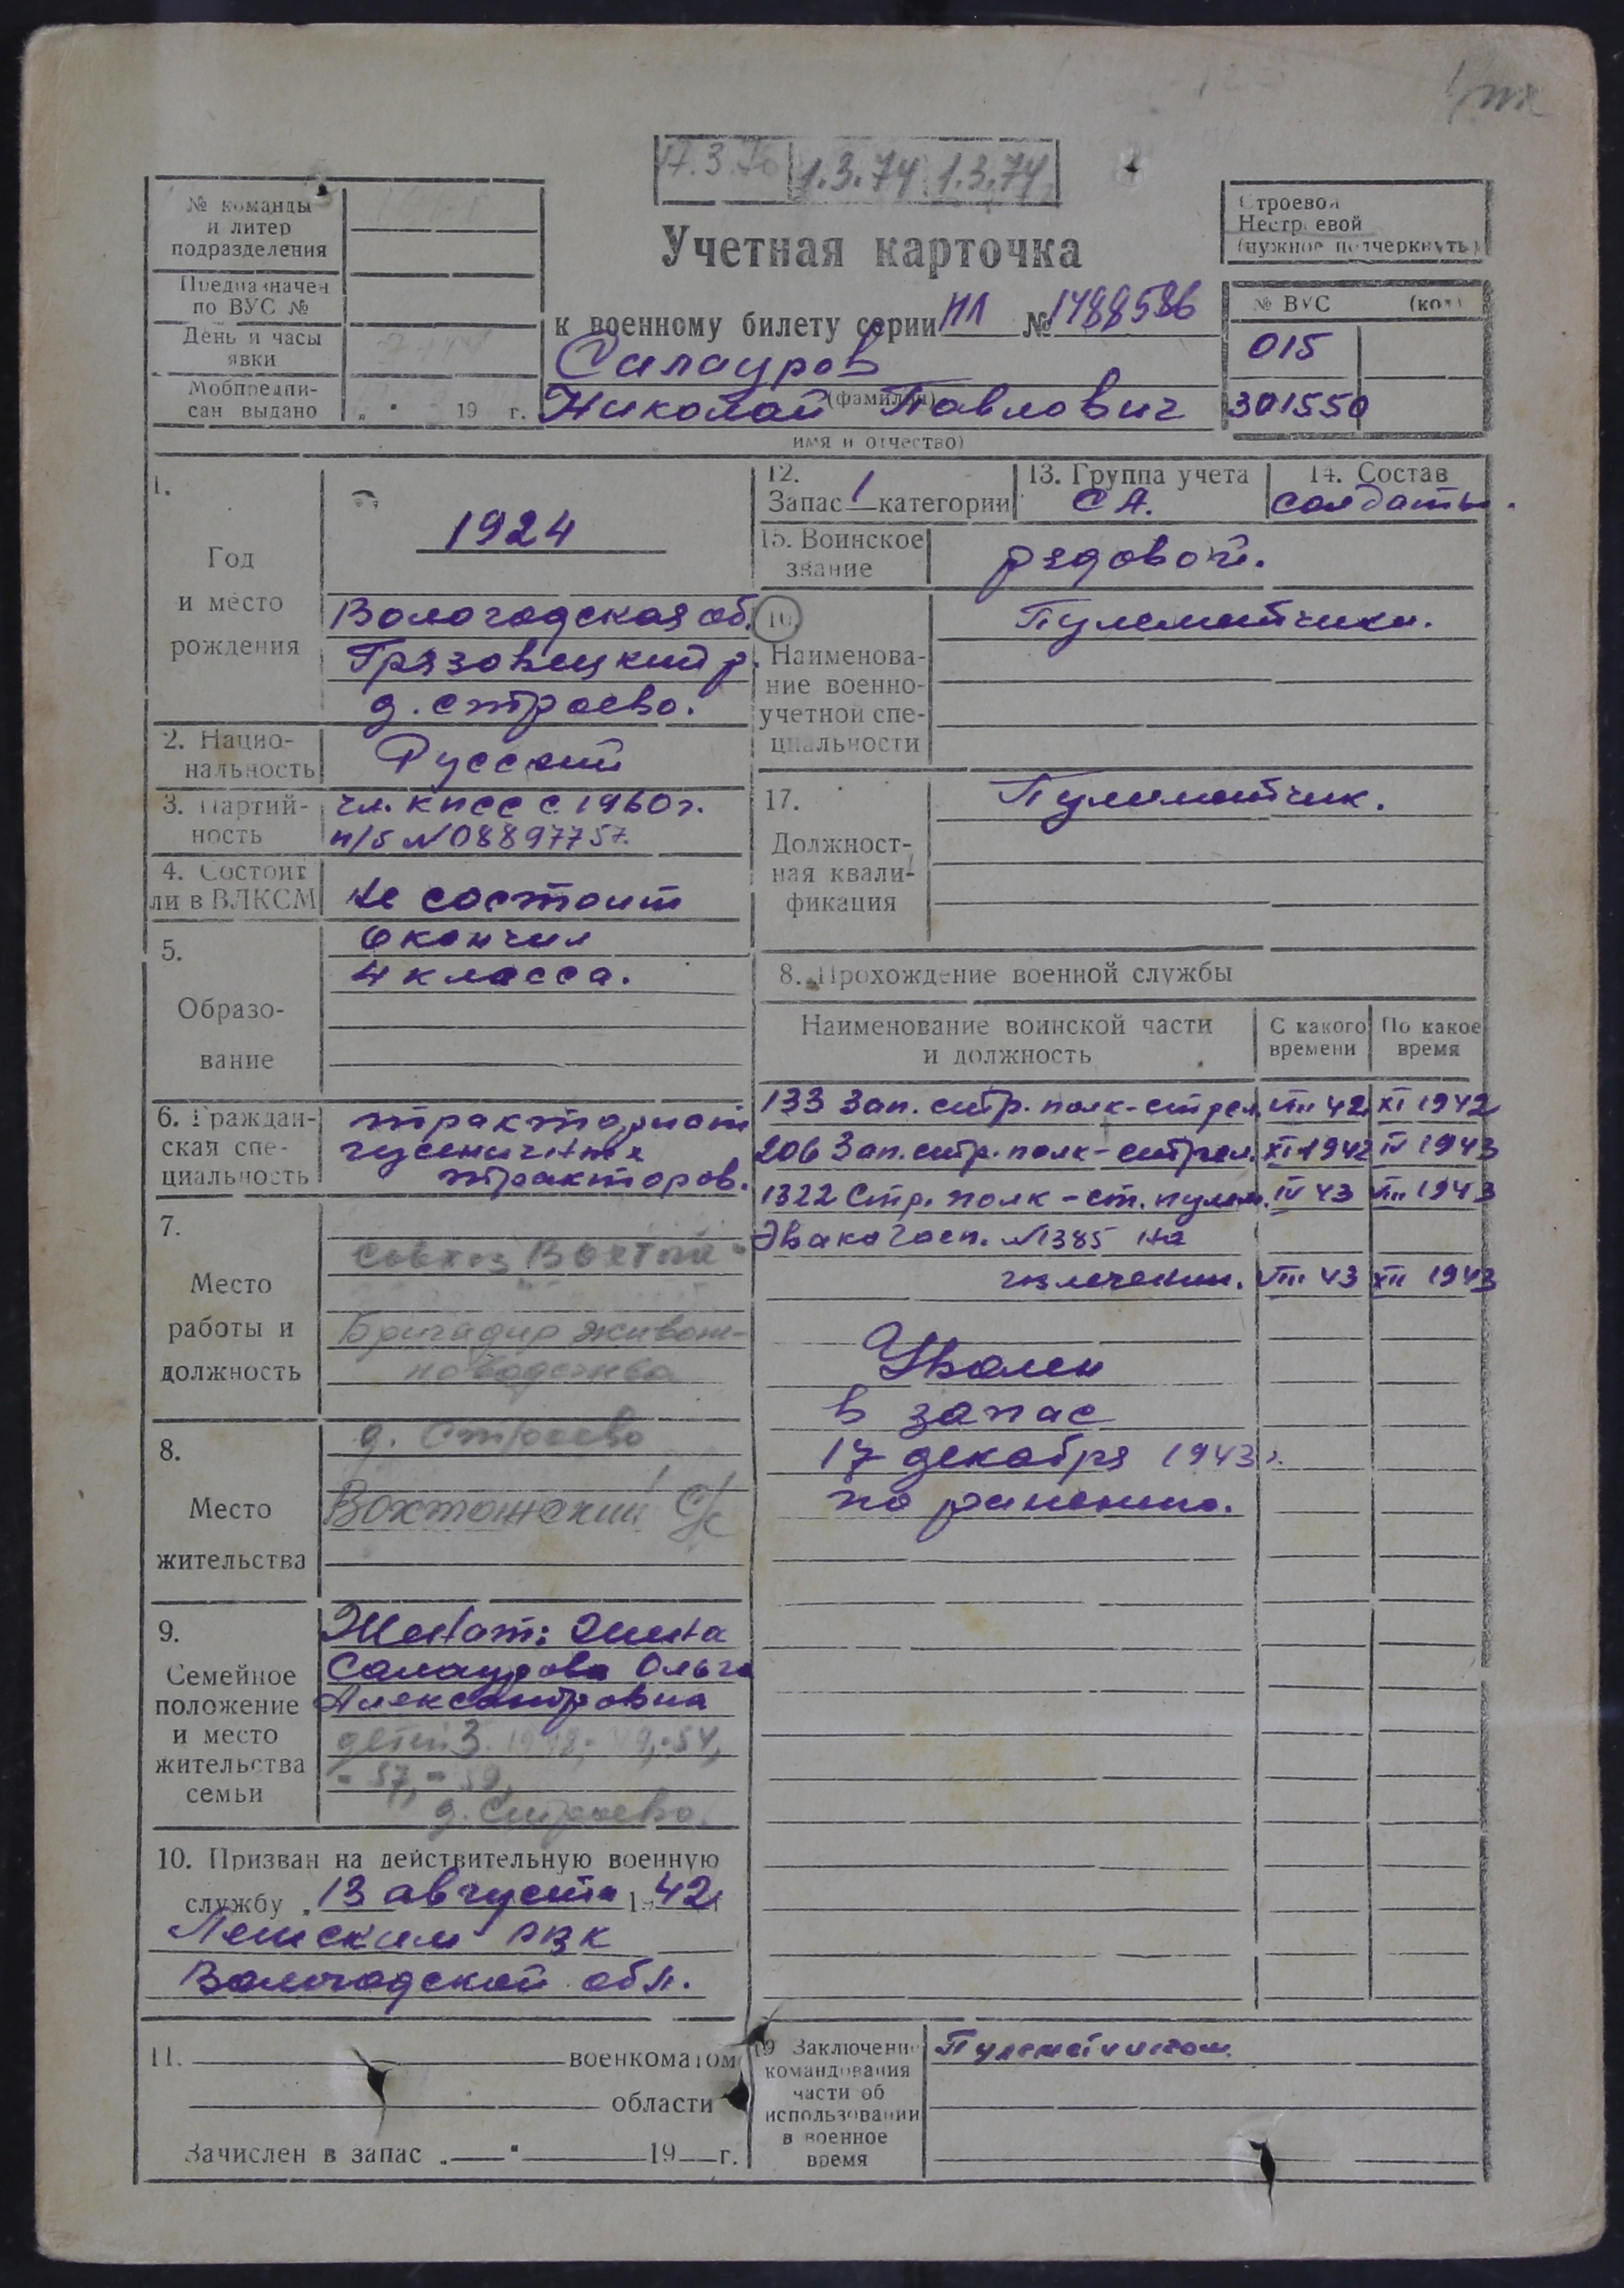 17.3.70 1.3.74 1.3.74
№ команды
и литер
подразделения
Предназначен
по ВУС №
День и часы
явки
Мобпредпи-
сан выдано „ " 19 г.
Учетная карточка
к военному билету серии НЛ № 1488586
Салауров
(фамилия)
Николай Павлович
имя и отчество)
Строевой
Нестроевой
(нужное подчеркнуть)
№ ВУС (код)
015
301550
1.
Год
и место
рождения
1924
Вологодская об.
Грязовецкий р.
д. Строево.
2. Нацио-
нальность
Русский
3. Партий-
ность
чл. КПСС с 1960 г.
п/б №08897757.
4. Состоит
ли в ВЛКСМ
Не состоит
5.
Образо-
вание
Окончил
4 класса.
6. Граждан-
ская спе-
циальность
тракторист
гусеничных
тракторов.
7.
Место
работы и
должность
Совхоз
Бригадир живот-
новодства
8.
Место
жительства
д. Строево
Вохтожский С/с
9.
Семейное
положение
и место
жительства
семьи
Женат: жена
Салаурова Ольга
Александровна
детей 3
- 57, - 59,
д. Строево.
10. Призван на действительную военную
службу „ 13 августа 1 42
Лежским РВК
Вологодской обл.
11. военкоматом
области
Зачислен в запас „ " 19 г.
12.
Запас 1 категории
13. Группа учета
СА.
14. Состав
солдаты.
15. Воинское
звание
рядовой.
16.
Наименова-
ние военно-
учетной спе-
циальности
Пулеметчики.
17.
Должност-
ная квали-
фикация
Пулеметчик.
8. Прохождение военной службы
Наименование воинской части
и должность
С какого
времени
По какое
время
133 Зап. стр. полк - стрел. VIII 42 XI 1942
206 Зап. стр. полк - стрел. XI 1942 IV 1943
1322 Стр. полк - ст. пулем. IV 43 VIII 1943
Эвакогосп. №1385 на
излечении. VIII 43 XII 1943
Уволен
в запас
17 декабря 1943 г.
по ранению.
19 Заключение
командования
части об
использовании
в военное
время
Пулеметчиком.